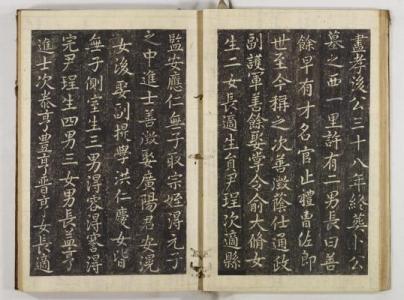 盡孝後公三十八年終葬小公
墓之西一里許有二男長曰善
餘早有才名官止禮曹佐郎
世至今稱之次善澂蔭仕通政
副護軍善餘娶掌令俞大脩女
生二女長適生員尹珵次適縣
監安應仁無子取宗姪得元子
之中進士善澂娶廣陽君安滉
女後娶副提學洪仁慶女皆
無子側室生三男得容得密得
完尹珵生四男三女男長益亨
進士次泰亨豊亨晉亨女長適